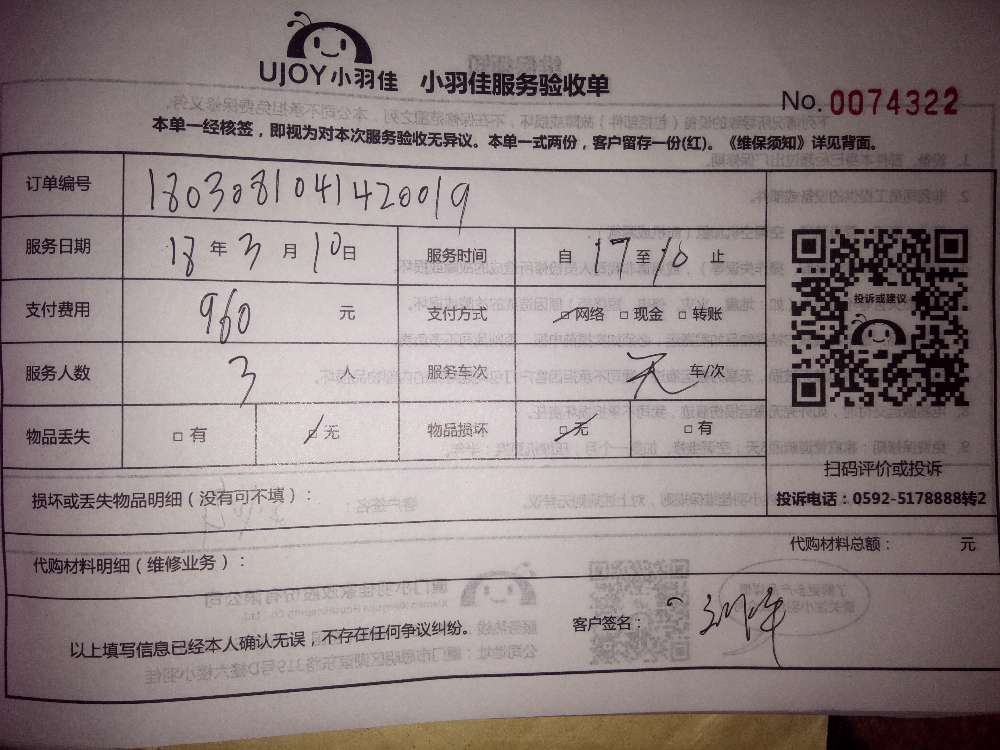 UJOY小羽佳 小羽佳服务验收单
No. 0074322
本单一经核签，即视为对本次服务验收无异议。本单一式两份，客户留存一份(红)。《维保须知》详见背面。
订单编号 1803081041420019
服务日期 18 年 3 月 10 日 服务时间 自 17 至 18 止
支付费用 960 元 支付方式 □ 网络 □ 现金 □ 转账
投诉或建议
服务人数 3 人 服务车次 无 车/次
物品丢失 □ 有 □ 无 物品损坏 □ 无 □ 有
扫码评价或投诉
损坏或丢失物品明细（没有可不填）：
投诉电话：0592-5178888转2
代购材料明细（维修业务）：
代购材料总额： 元
以上填写信息已经本人确认无误，不存在任何争议纠纷。 客户签名：